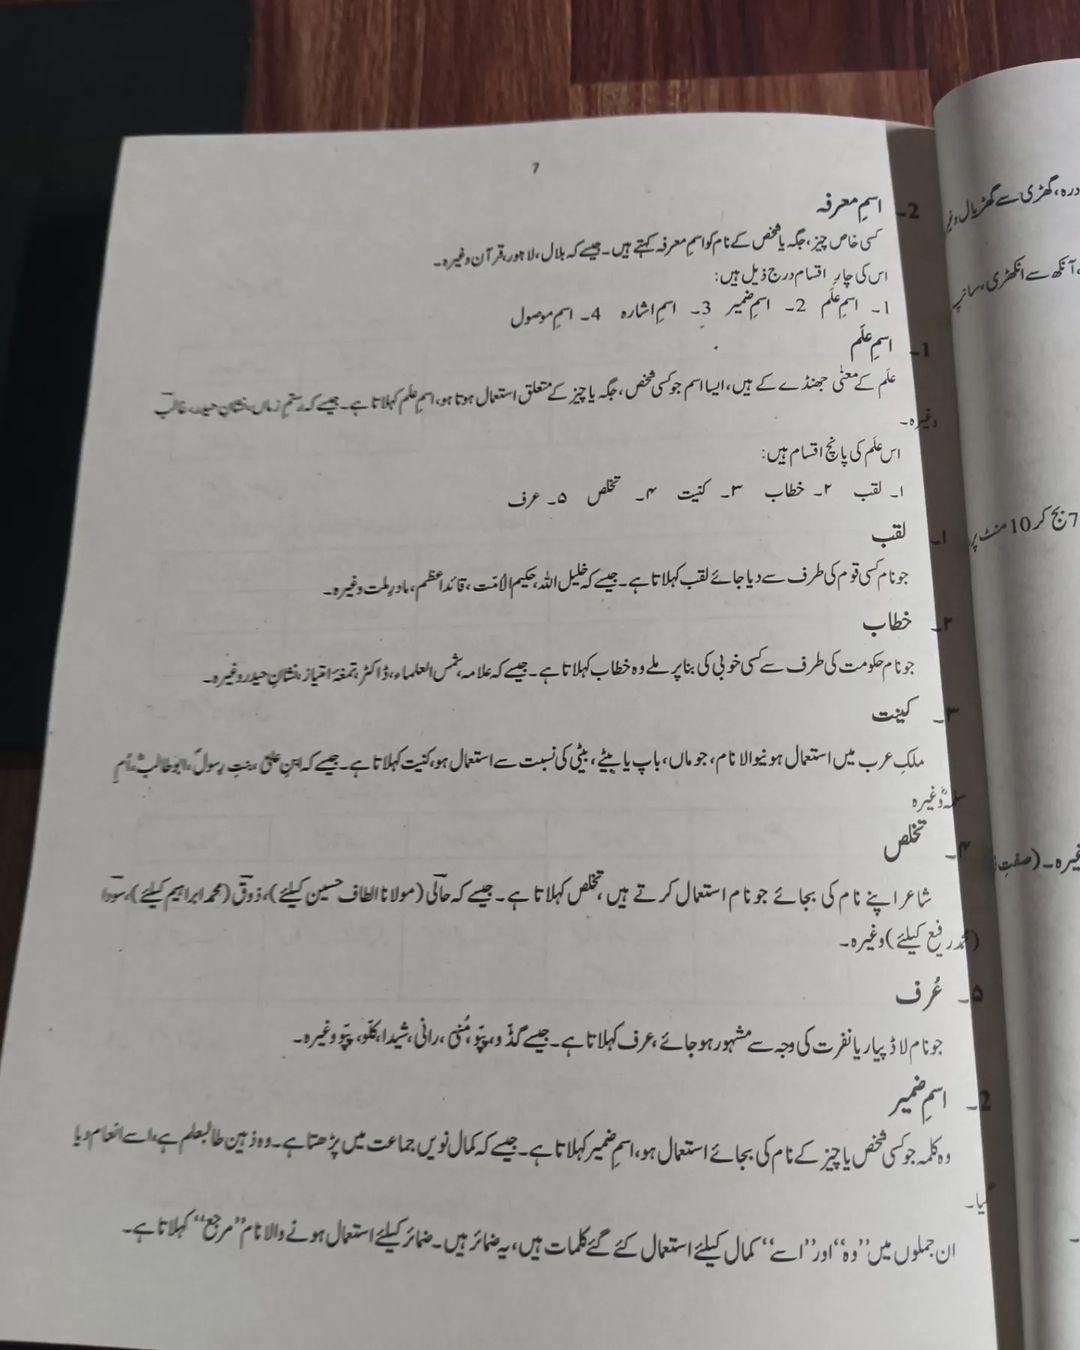 7
2۔ اسمِ معرفہ
کسی خاص چیز، جگہ یا شخص کے نام کو اسمِ معرفہ کہتے ہیں۔ جیسے کہ بلال، لاہور، قرآن وغیرہ۔
اس کی چار اقسام درج ذیل ہیں:
1۔ اسمِ علَم 2۔ اسمِ ضمیر 3۔ اسمِ اشارہ 4۔ اسمِ موصول
1۔ اسمِ علَم
علَم کے معنٰی جھنڈے کے ہیں، ایسا اسم جو کسی شخص، جگہ یا چیز کے متعلق استعمال ہوتا ہو، اسمِ علَم کہلاتا ہے۔ جیسے کہ رستمِ زماں، نشانِ حیدر، غالبؔ
وغیرہ۔
اس علَم کی پانچ اقسام ہیں:
۱۔ لقب ۲۔ خطاب ۳۔ کنیت ۴۔ تخلص ۵۔ عرف
۱۔ لقب
جو نام کسی قوم کی طرف سے دیا جائے لقب کہلاتا ہے۔ جیسے کہ خلیل اللہ، حکیم الاُمّت، قائداعظم، مادرِ ملت وغیرہ۔
۲۔ خطاب
جو نام حکومت کی طرف سے کسی خوبی کی بنا پر ملے وہ خطاب کہلاتا ہے۔ جیسے کہ علامہ، شمس العلماء، ڈاکٹر، تمغۂ امتیاز، نشانِ حیدر وغیرہ۔
۳۔ کینت
ملکِ عرب میں استعمال ہونیوالا نام، جو ماں، باپ یا بیٹے، بیٹی کی نسبت سے استعمال ہو، کنیت کہلاتا ہے۔ جیسے کہ ابنِ علیؓ، بنتِ رسولؐ، ابو طالب، اُمِ
سلمہؓ وغیرہ
۴۔ تخلص
شاعر اپنے نام کی بجائے جو نام استعمال کرتے ہیں، تخلص کہلاتا ہے۔ جیسے کہ حالیؔ (مولانا الطاف حسین کیلئے)، ذوقؔ (محمد ابراہیم کیلئے)، سوداؔ
(محمد رفیع کیلئے) وغیرہ۔
۵۔ عُرف
جو نام لاڈ پیار یا نفرت کی وجہ سے مشہور ہو جائے، عرف کہلاتا ہے۔ جیسے گڈّو، پپّو، مُنّی، رانی، شیدا، کلّو، پپّو وغیرہ۔
2۔ اسمِ ضمیر
وہ کلمہ جو کسی شخص یا چیز کے نام کی بجائے استعمال ہو، اسمِ ضمیر کہلاتا ہے۔ جیسے کہ کمال نویں جماعت میں پڑھتا ہے۔ وہ ذہین طالبعلم ہے، اسے انعام دیا
گیا۔
ان جملوں میں ’’وہ‘‘ اور ’’اسے‘‘ کمال کیلئے استعمال کئے گئے کلمات ہیں، یہ ضمائر ہیں۔ ضمائر کیلئے استعمال ہونے والا نام ’’مرجع‘‘ کہلاتا ہے۔
گھڑی سے گھڑیال
، آنکھ سے انکھڑی، سانپ
7 بج کر 10 منٹ پر